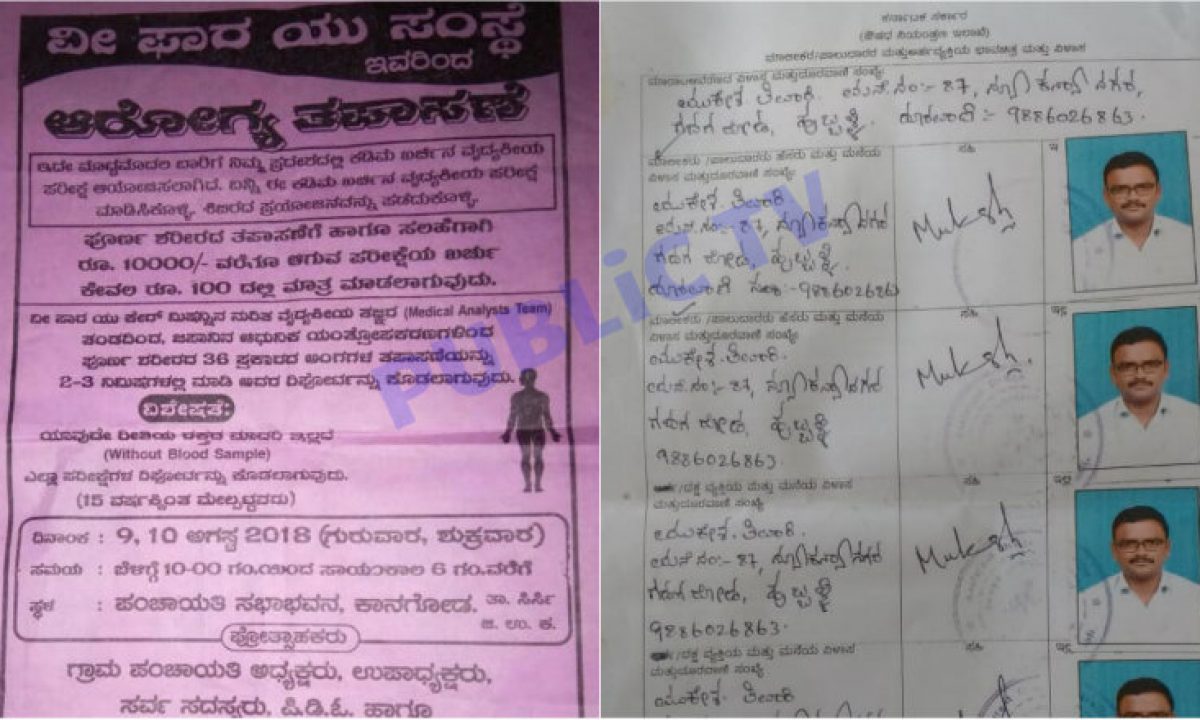 ವೀ ಫಾರ ಯು ಸಂಸ್ಥೆ
ಇವರಿಂದ
ಆರೋಗ್ಯ ತಪಾಸಣೆ
ಇದೇ ಮಾಧ್ಯಮಾದಲ ಬಾರಿಗೆ ನಿಮ್ಮ ಪ್ರದೇಶದಲ್ಲಿ ಕಡಿಮೆ ಖರ್ಚಿನ ವೈದ್ಯಕೀಯ
ಪರೀಕ್ಷೆ ಆಯೋಜಿಸಲಾಗಿದೆ. ಬನ್ನಿ ಈ ಕಡಿಮೆ ಖರ್ಚಿನ ವೈದ್ಯಕೀಯ ಪರೀಕ್ಷೆ
ಮಾಡಿಸಿಕೊಳ್ಳಿ. ಶಿಬಿರದ ಪ್ರಯೋಜನವನ್ನು ಪಡೆದುಕೊಳ್ಳಿ.
ಪೂರ್ಣ ಶರೀರದ ತಪಾಸಣೆಗೆ ಹಾಗೂ ಸಲಹೆಗಾಗಿ
ರೂ. 10000/- ವರೆಗೂ ಆಗುವ ಪರೀಕ್ಷೆಯ ಖರ್ಚು
ಕೇವಲ ರೂ. 100 ದಲ್ಲಿ ಮಾತ್ರ ಮಾಡಲಾಗುವುದು.
ವೀ ಫಾರ ಯು ಕೇರ್ ಮಿಷನ್ನಿನ ನುರಿತ ವೈದ್ಯಕೀಯ ತಜ್ಞರ (Medical Analysts Team)
ತಂಡದಿಂದ, ಜಪಾನಿನ ಆಧುನಿಕ ಯಂತ್ರೋಪಕರಣಗಳಿಂದ
ಪೂರ್ಣ ಶರೀರದ 36 ಪ್ರಕಾರದ ಅಂಗಗಳ ತಪಾಸಣೆಯನ್ನು
2-3 ನಿಮಿಷಗಳಲ್ಲಿ ಮಾಡಿ ಅದರ ರಿಪೋರ್ಟನ್ನು ಕೊಡಲಾಗುವುದು.
ವಿಶೇಷತೆ:
ಯಾವುದೇ ರೀತಿಯ ರಕ್ತದ ಮಾದರಿ ಇಲ್ಲದೆ
(Without Blood Sample)
ಎಲ್ಲಾ ಪರೀಕ್ಷೆಗಳ ರಿಪೋರ್ಟನ್ನು ಕೊಡಲಾಗುವುದು.
(15 ವರ್ಷಕ್ಕಿಂತ ಮೇಲ್ಪಟ್ಟವರು)
ದಿನಾಂಕ : 9, 10 ಅಗಸ್ಟ 2018 (ಗುರುವಾರ, ಶುಕ್ರವಾರ)
ಸಮಯ : ಬೆಳಗ್ಗೆ 10-00 ಗಂ.ಯಿಂದ ಸಾಯಂಕಾಲ 6 ಗಂ.ವರೆಗೆ
ಸ್ಥಳ : ಪಂಚಾಯತಿ ಸಭಾಭವನ, ಕಾನಗೋಡ. ತಾ. ಸಿರ್ಸಿ
ಜಿ. ಉ. ಕ.
ಪ್ರೋತ್ಸಾಹಕರು
ಗ್ರಾಮ ಪಂಚಾಯತಿ ಅಧ್ಯಕ್ಷರು, ಉಪಾಧ್ಯಕ್ಷರು,
ಸರ್ವ ಸದಸ್ಯರು, ಪಿ.ಡಿ.ಓ. ಹಾಗೂ
PUBLiC TV
ಕರ್ನಾಟಕ ಸರ್ಕಾರ
(ಔಷಧ ನಿಯಂತ್ರಣ ಇಲಾಖೆ)
ಮುಕೇಶ ತಿವಾರಿ. ಮನೆ.ನಂ:- 87,
ಗದಗ ರೋಡ, ಹುಬ್ಬಳ್ಳಿ. ದೂರವಾಣಿ :- 9886026863.
ಮಾಲೀಕರು /ಪಾಲುದಾರರು ಹೆಸರು ಮತ್ತು ಮನೆಯ
ವಿಳಾಸ ಮತ್ತುದೂರವಾಣಿ ಸಂಖ್ಯೆ:
ಸಹಿ
ಮುಕೇಶ ತಿವಾರಿ
ಮನೆ.ನಂ:- 87,
ಗದಗ ರೋಡ, ಹುಬ್ಬಳ್ಳಿ.
Mukesh
ಮಾಲೀಕರು /ಪಾಲುದಾರರು ಹೆಸರು ಮತ್ತು ಮನೆಯ
ವಿಳಾಸ ಮತ್ತುದೂರವಾಣಿ ಸಂಖ್ಯೆ:
ಸಹಿ
ಮುಕೇಶ. ತಿವಾರಿ.
ಮನೆ.ನಂ:- 87,
ಗದಗ ರೋಡ, ಹುಬ್ಬಳ್ಳಿ
9886026863.
Mukesh.
/ದಕ್ಷ ವ್ಯಕ್ತಿಯ ಮತ್ತು ಮನೆಯ ವಿಳಾಸ
ಮತ್ತುದೂರವಾಣಿ ಸಂಖ್ಯೆ:
ಸಹಿ
ಮುಕೇಶ. ತಿವಾರಿ.
ಮನೆ.ನಂ:- 87,
ಗದಗ ರೋಡ, ಹುಬ್ಬಳ್ಳಿ
9886026863.
Mukesh
/ದಕ್ಷ ವ್ಯಕ್ತಿಯ ಮತ್ತು ಮನೆಯ ವಿಳಾಸ
ಮತ್ತುದೂರವಾಣಿ ಸಂಖ್ಯೆ
ಸಹಿ
ಮುಕೇಶ. ತಿವಾರಿ